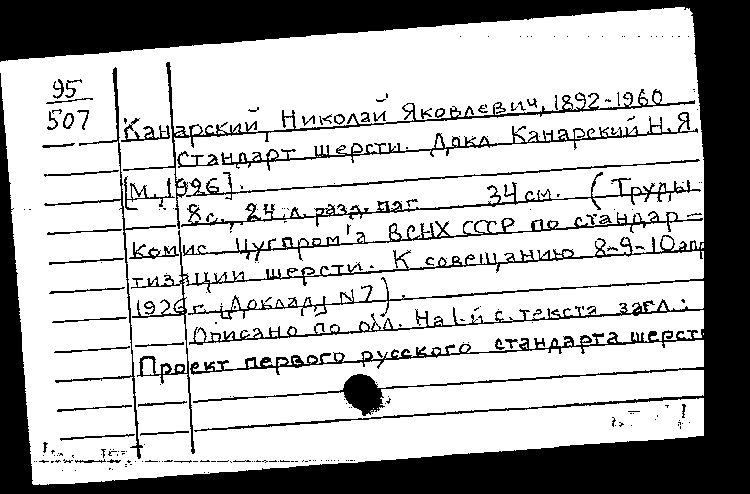 95
507
Канарский, Николай Яковлевич, 1892-1960
Стандарт шерсти. Докл. Канарский Н.Я.
[М., 1926].
8 с., 24 л. разд. паг 34 см. (Труды
Комис. Цугпром'а ВСНХ СССР по стандар-
тизации шерсти. К совещанию 8-9-10 апр
1926 г. [Доклад] N 7).
Описано по обл. На 1-й с. текста загл.:
Проект первого русского стандарта шерсти